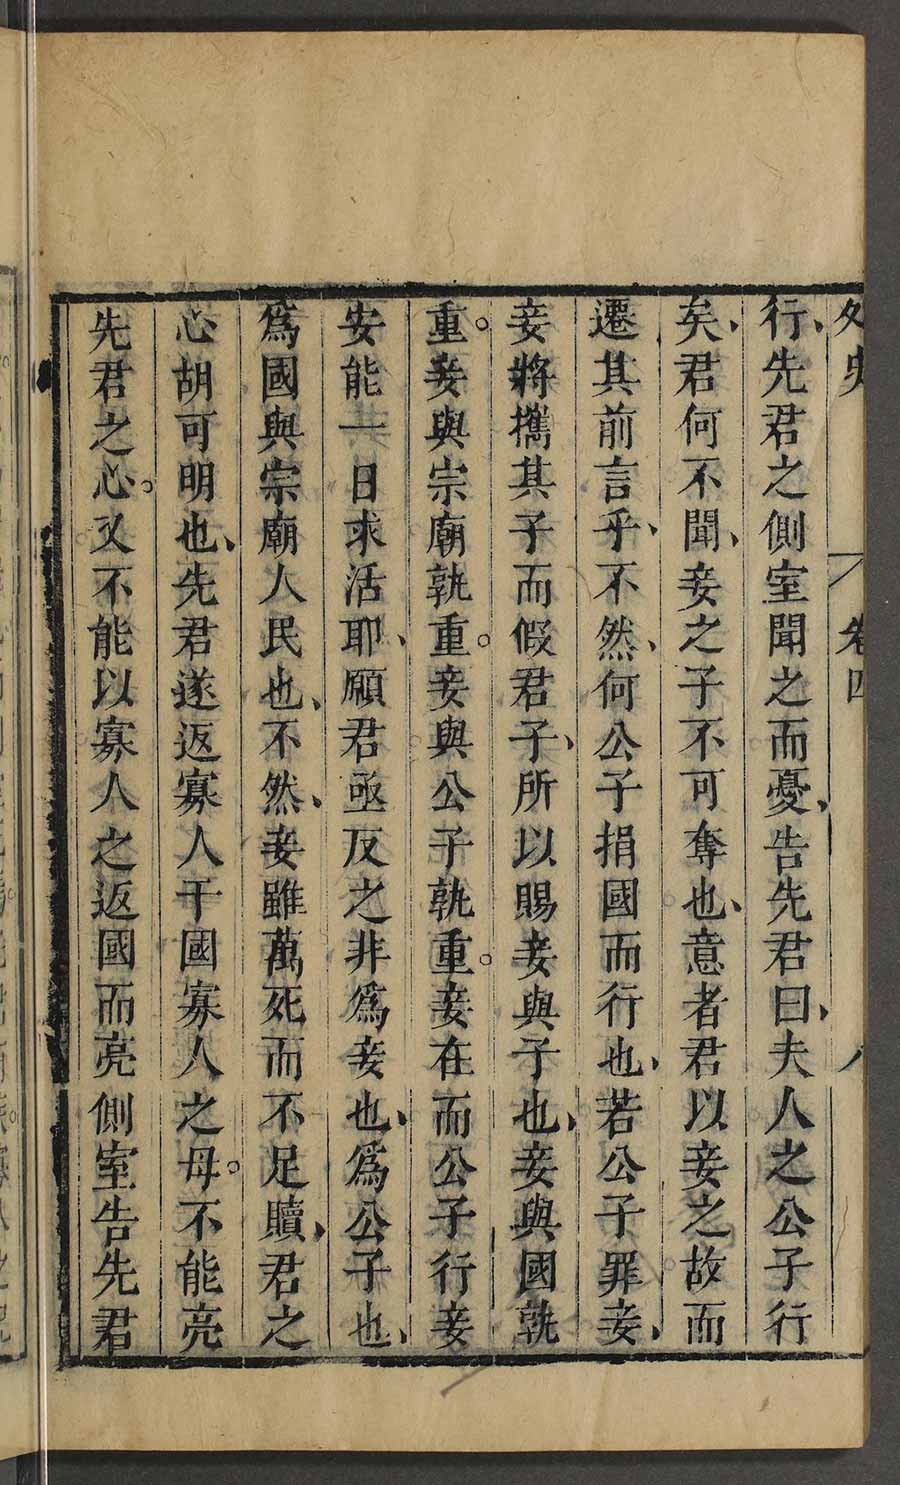 外史 卷四 八
行、先君之側室聞之而憂、告先君曰、夫人之公子行
矣、君何不聞、妾之子不可奪也、意者君以妾之故而
遷其前言乎、不然、何公子捐國而行也、若公子罪妾、
妾將攜其子而假君子、所以賜妾與子也、妾與國孰
重。妾與宗廟孰重。妾與公子孰重。妾在而公子行妾
安能一日求活耶、願君亟反之非爲妾也、爲公子也、
爲國與宗廟人民也、不然、妾雖萬死而不足贖、君之
心胡可明也、先君遂返寡人于國寡人之母。不能亮
先君之心。又不能以寡人之返國而亮側室告先君